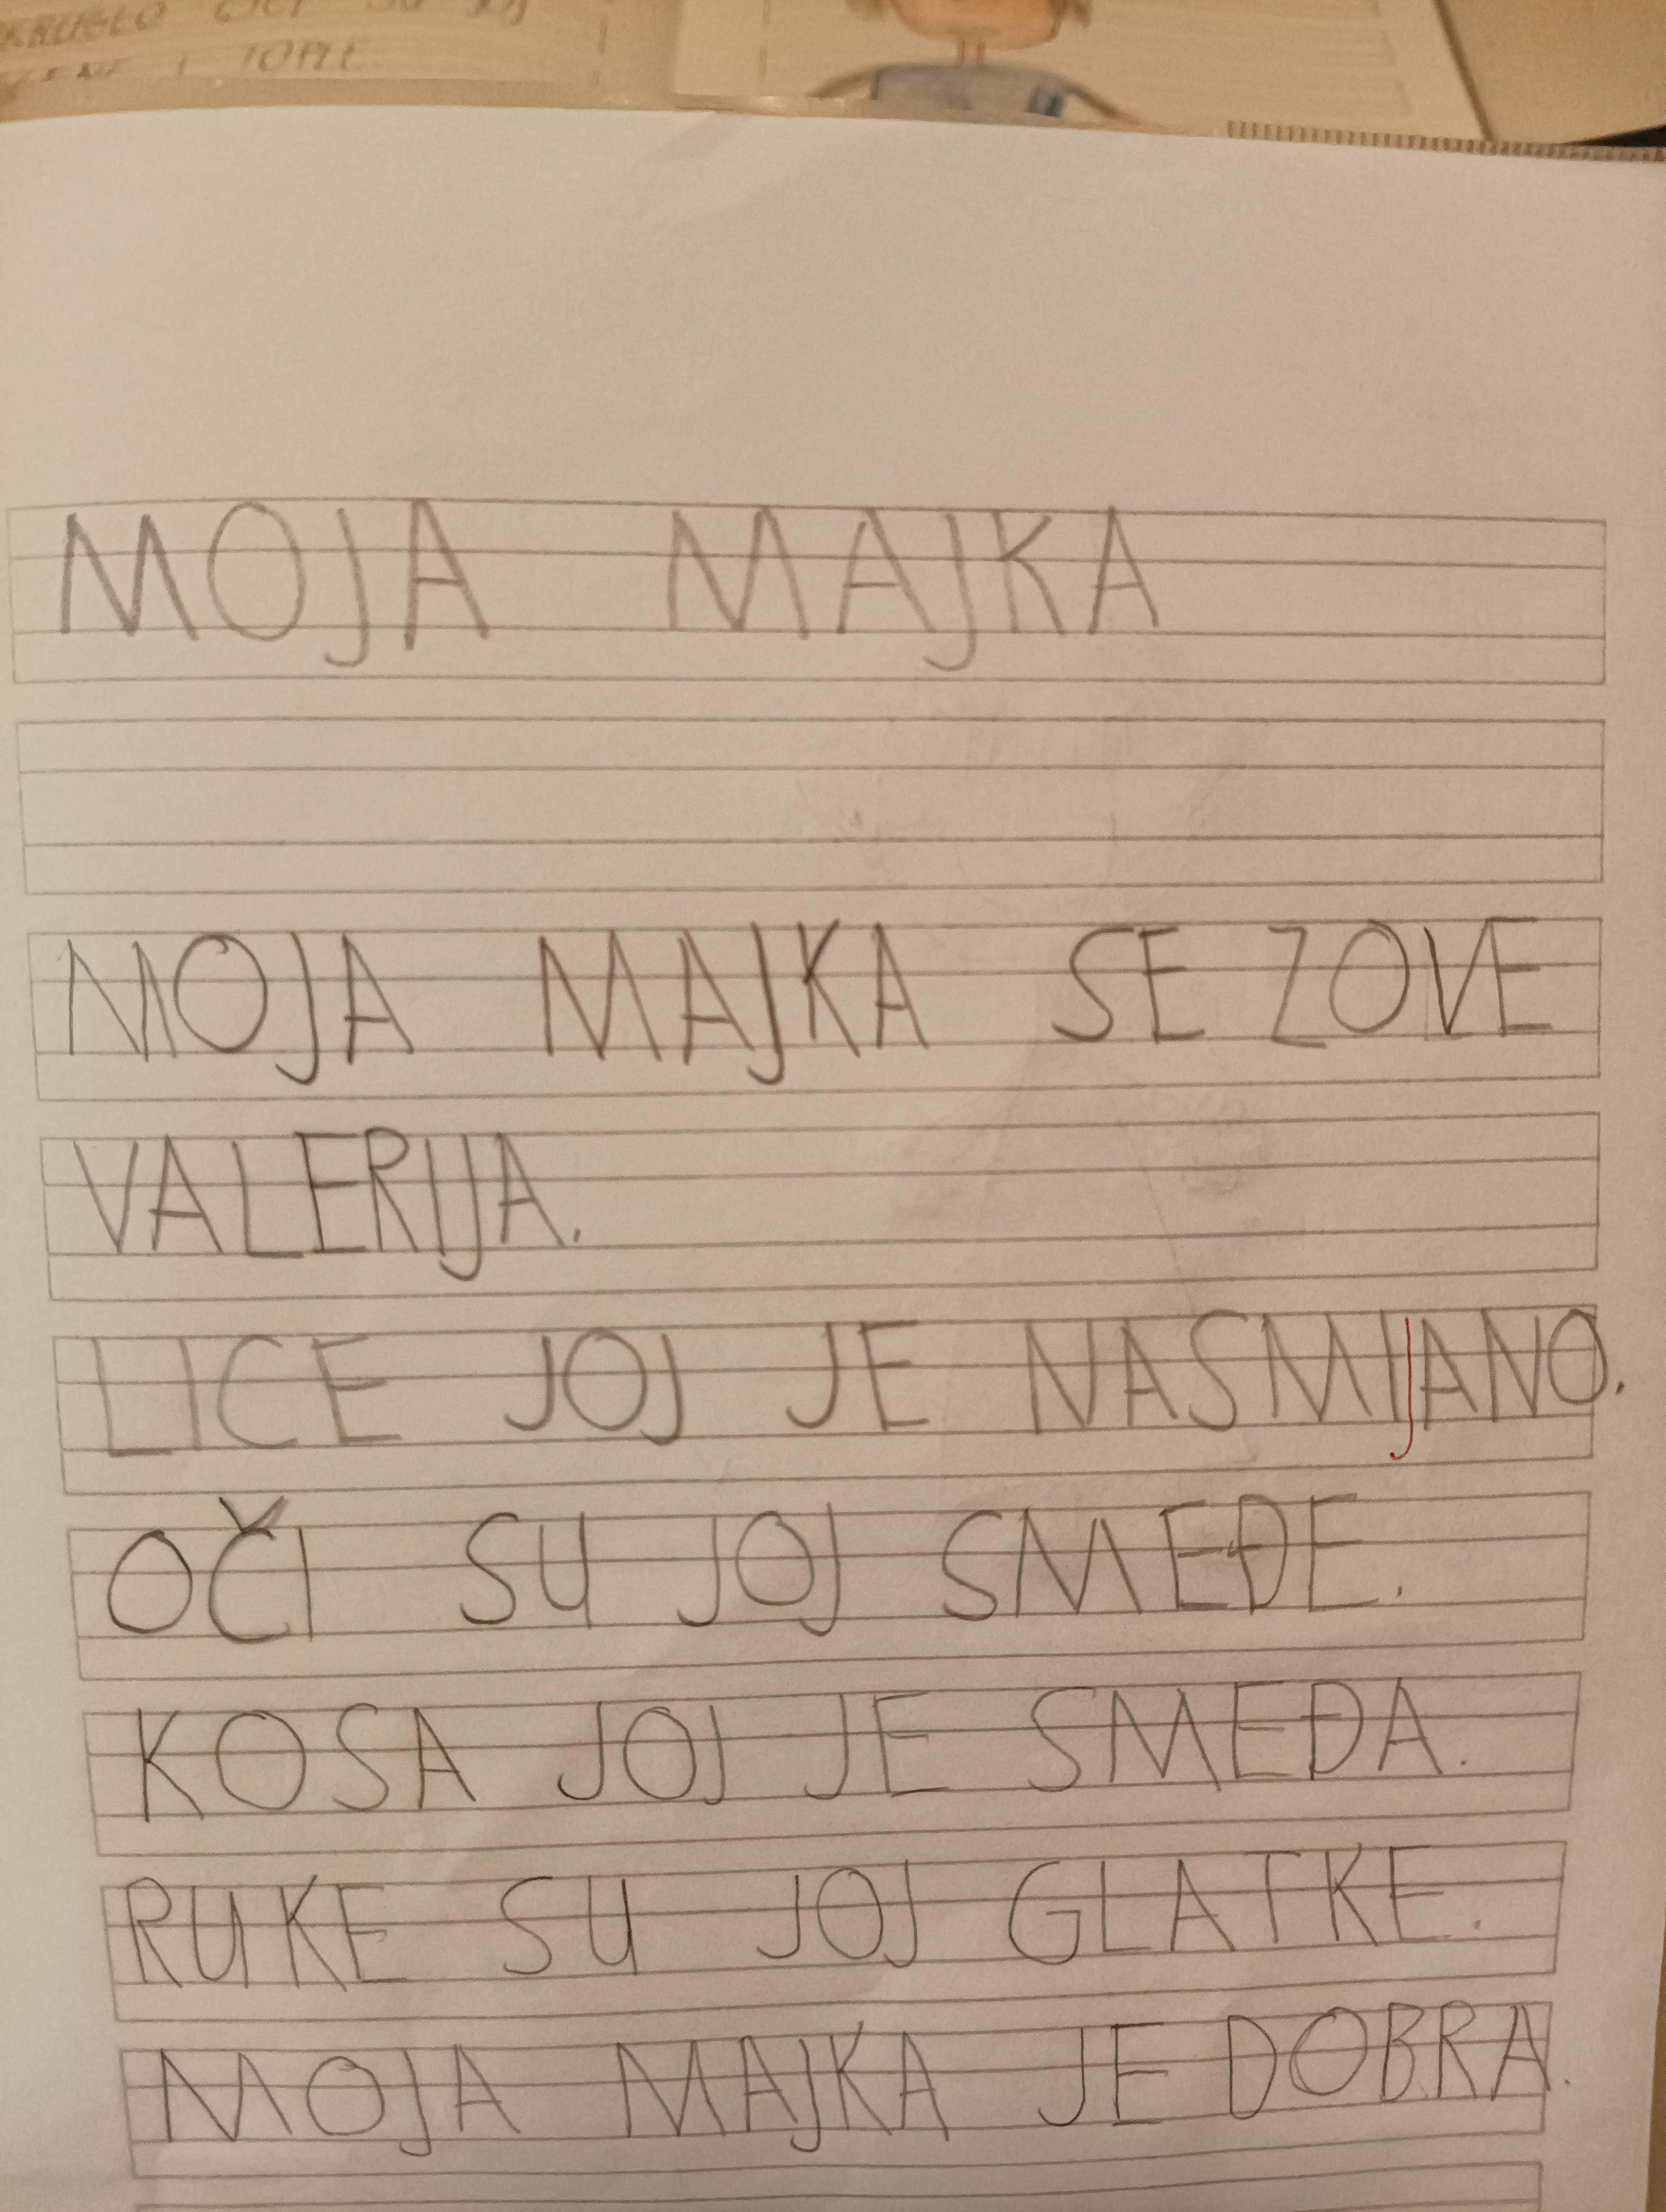 OČI SU JOJ
I TOPLE
MOJA MAJKA
MOJA MAJKA SE ZOVE
VALERIJA.
LICE JOJ JE NASMIJANO.
OČI SU JOJ SMEĐE.
KOSA JOJ JE SMEĐA.
RUKE SU JOJ GLATKE.
MOJA MAJKA JE DOBRA.